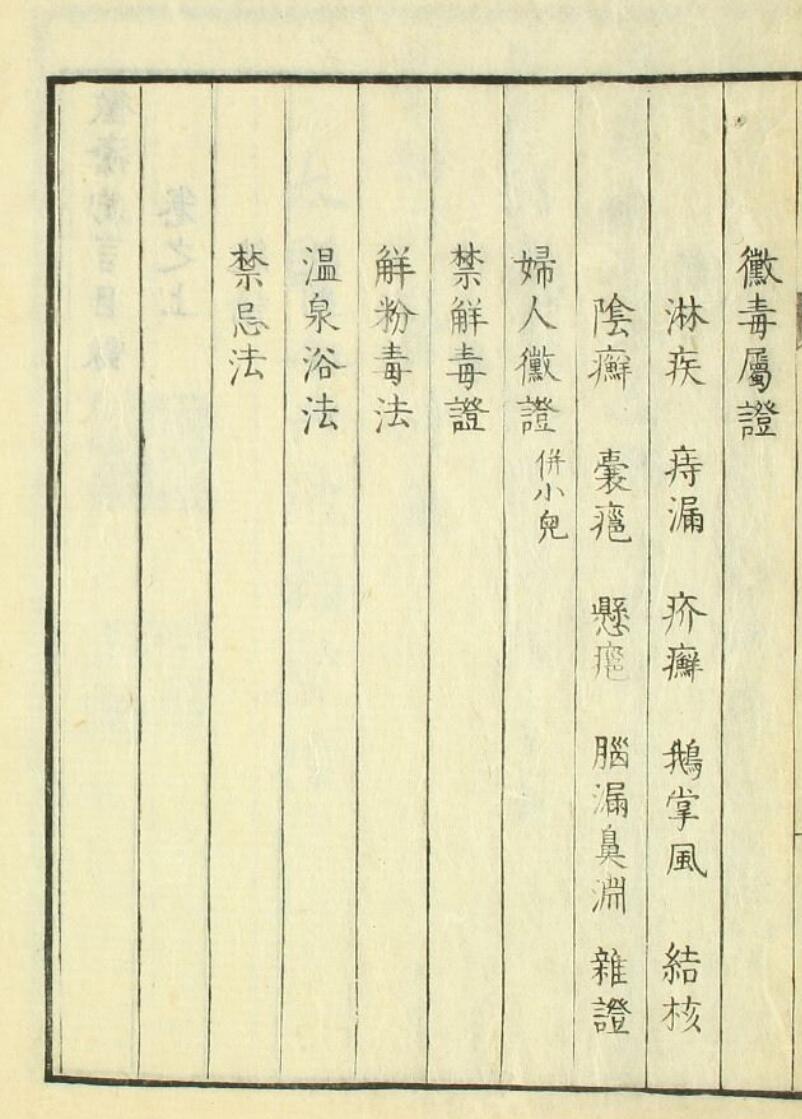 黴毒屬證
淋疾 痔漏 疥癬 鵝掌風 結核
陰癬 囊癰 懸癰 腦漏鼻淵 雜證
婦人黴證 併小兒
禁解毒證
解粉毒法
温泉浴法
禁忌法